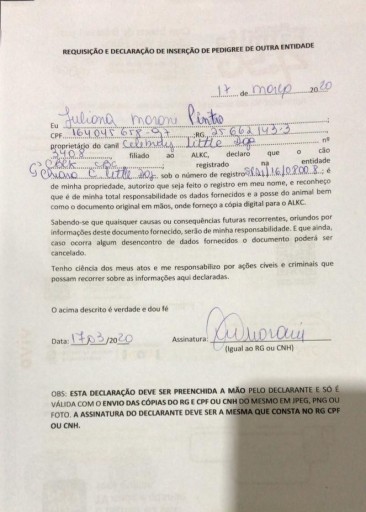 REQUISIÇÃO E DECLARAÇÃO DE INSERÇÃO DE PEDIGREE DE OUTRA ENTIDADE
17 de março 2020
Eu Juliana Moroni Pinto
CPF 164045658-97 ;RG, 25662143-3
proprietário do canil Celebrity little dog nº
3408 filiado ao ALKC, declaro que o cão
registrado na entidade
C. little dog sob o número de registro ; é
de minha propriedade, autorizo que seja feito o registro em meu nome, e reconheço
que é de minha total responsabilidade os dados fornecidos e a posse do animal bem
como o documento original em mãos, onde forneço a cópia digital para o ALKC.
Sabendo-se que quaisquer causas ou consequências futuras recorrentes, oriundos por
informações deste documento fornecido, serão de minha responsabilidade. E que ainda,
caso ocorra algum desencontro de dados fornecidos o documento poderá ser
cancelado.
Tenho ciência dos meus atos e me responsabilizo por ações cíveis e criminais que
possam recorrer sobre as informações aqui declaradas.
O acima descrito é verdade e dou fé
Data: 17/03/2020 Assinatura:
(Igual ao RG ou CNH)
OBS: ESTA DECLARAÇÃO DEVE SER PREENCHIDA A MÃO PELO DECLARANTE E SÓ É
VÁLIDA COM O ENVIO DAS CÓPIAS DO RG E CPF OU CNH DO MESMO EM JPEG, PNG OU
FOTO. A ASSINATURA DO DECLARANTE DEVE SER A MESMA QUE CONSTA NO RG CPF
OU CNH.